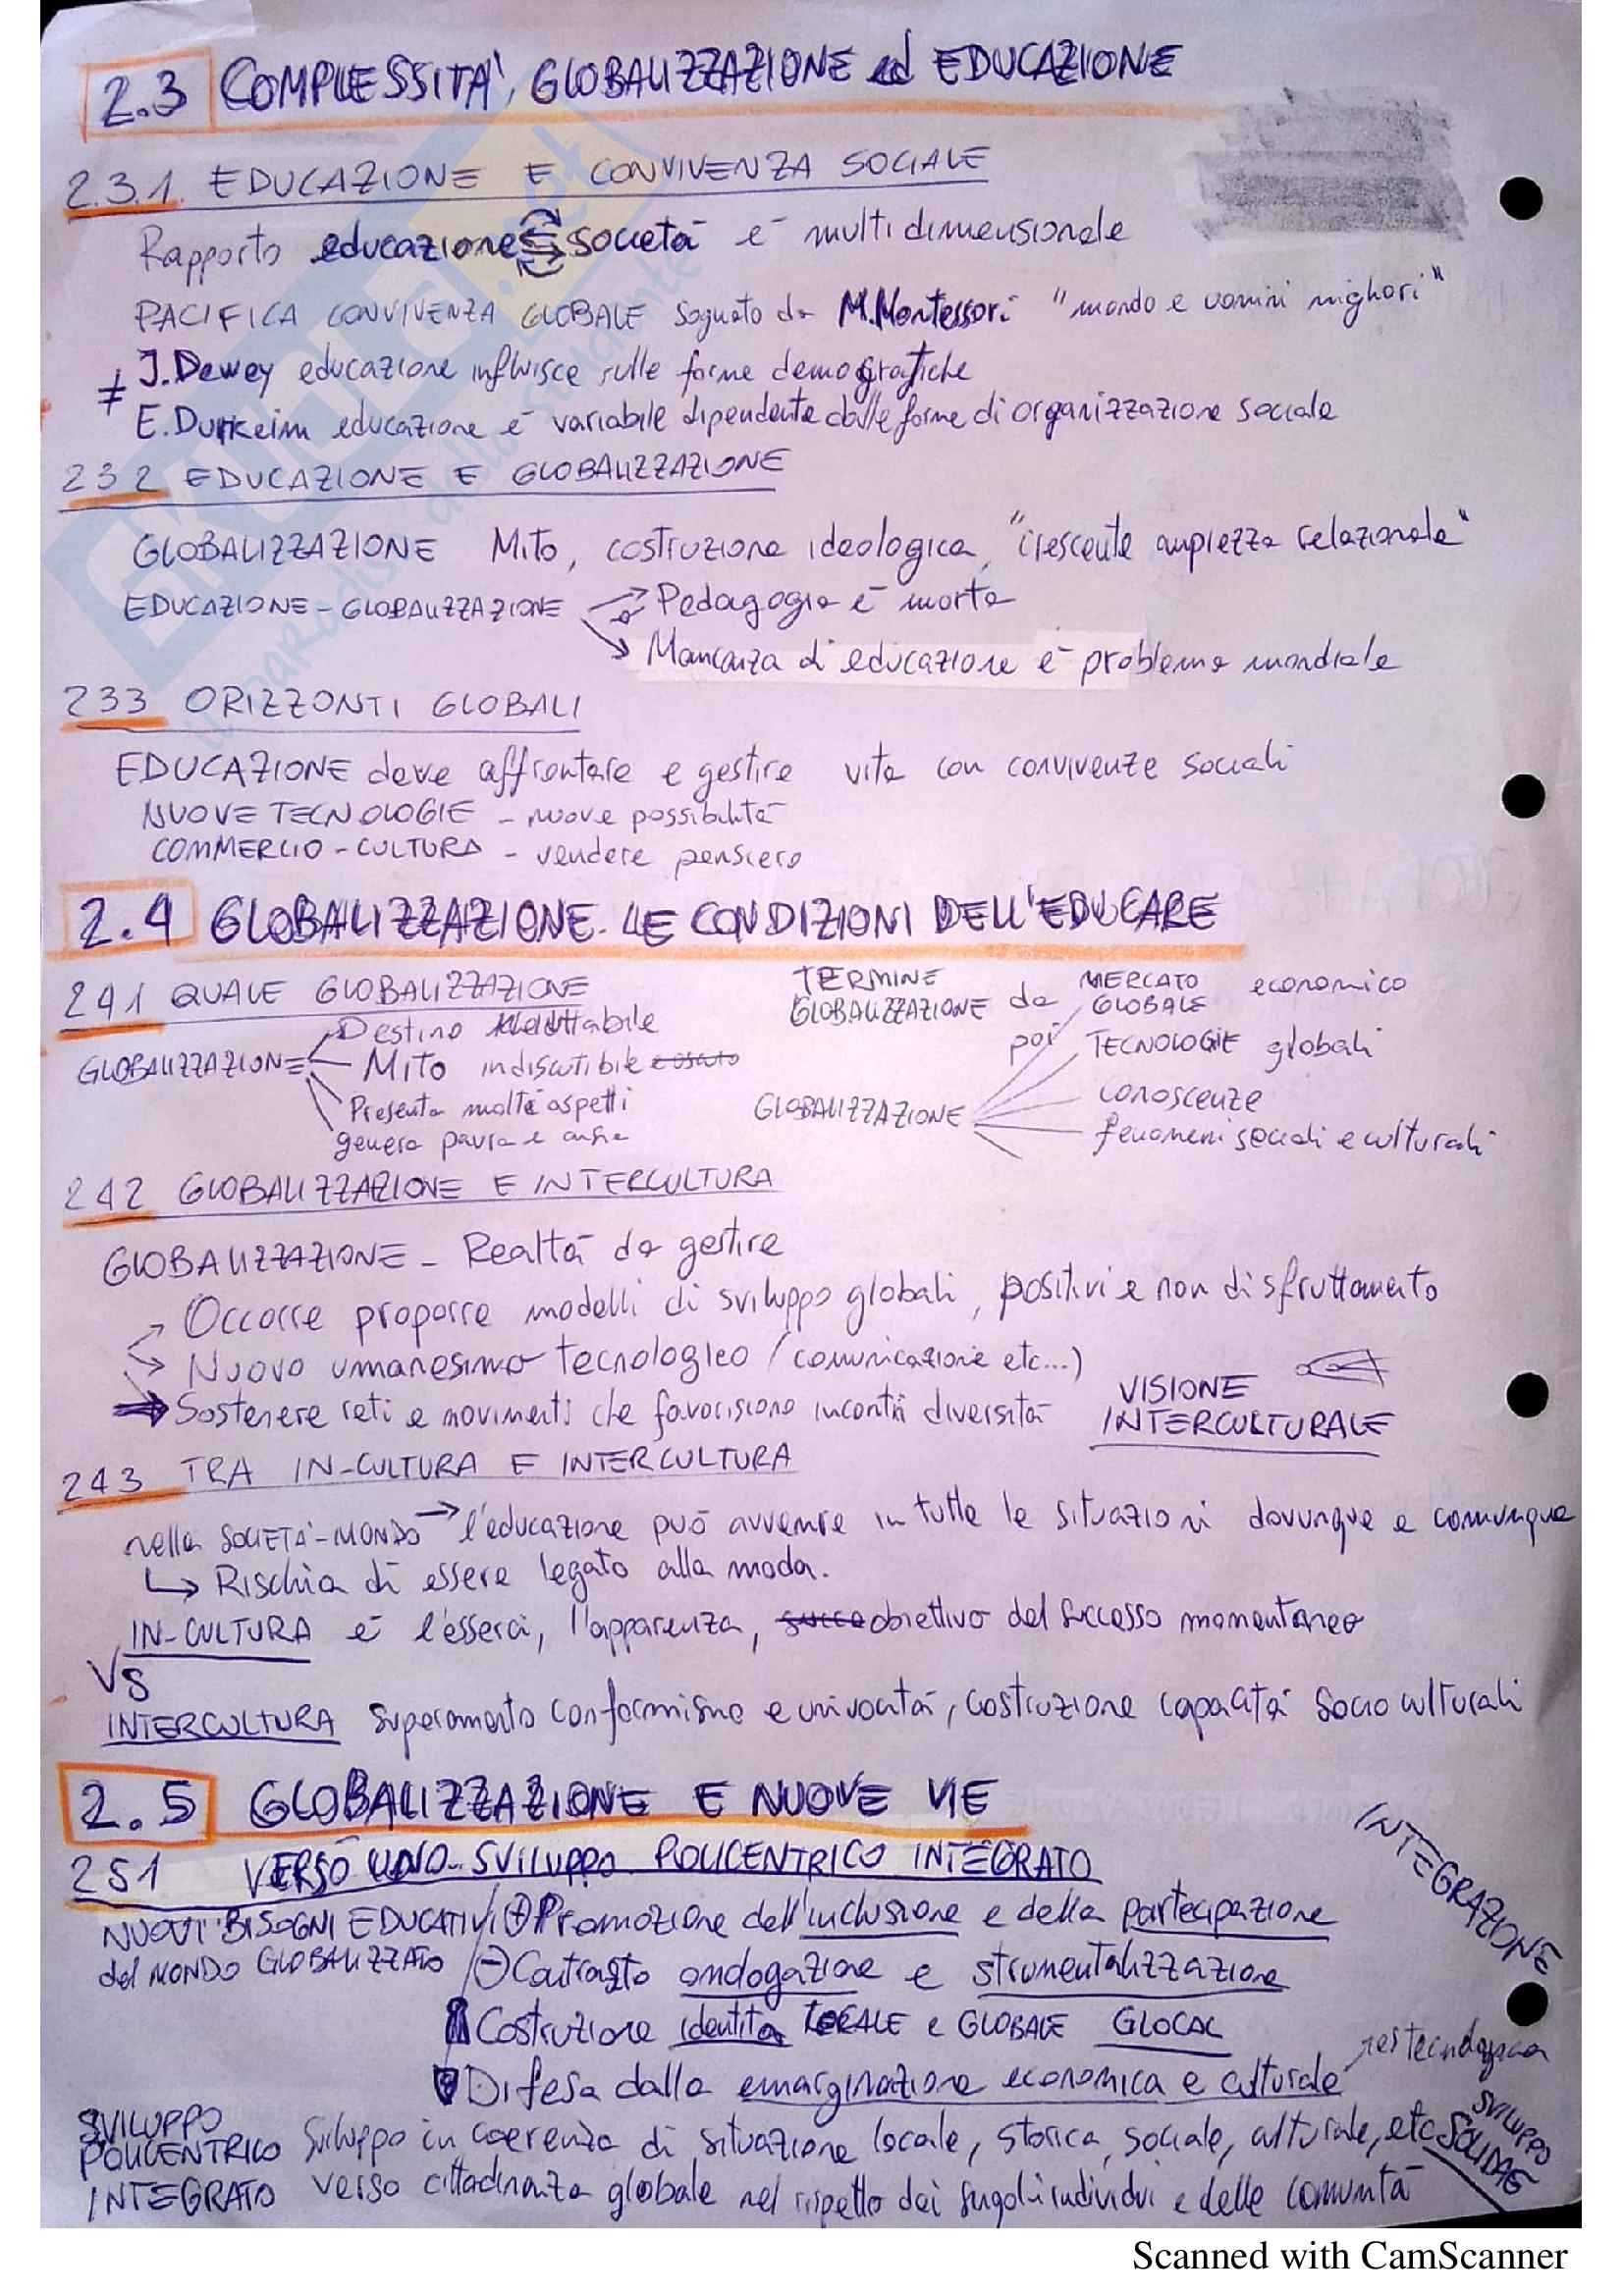 2.3 COMPLESSITA', GLOBALIZZAZIONE ed EDUCAZIONE
2.3.1. EDUCAZIONE E CONVIVENZA SOCIALE
Rapporto educazione società è multidimensionale
PACIFICA CONVIVENZA GLOBALE sognato da M.Montessori "mondo e uomini migliori"
≠ J.Dewey educazione influisce sulle forme demografiche
E.Durkeim educazione è variabile dipendente dalle forme di organizzazione sociale
232 EDUCAZIONE E GLOBALIZZAZIONE
GLOBALIZZAZIONE Mito, costruzione ideologica, "crescente ampiezza relazionale"
EDUCAZIONE - GLOBALIZZAZIONE → Pedagogia è morta
→ Mancanza di educazione è problema mondiale
233 ORIZZONTI GLOBALI
EDUCAZIONE deve affrontare e gestire vita con convivenze sociali
NUOVE TECNOLOGIE - nuove possibilità
COMMERCIO - CULTURA - vendere pensiero
2.4 GLOBALIZZAZIONE. LE CONDIZIONI DELL'EDUCARE
241 QUALE GLOBALIZZAZIONE
GLOBALIZZAZIONE Destino
Mito indiscutibile
Presenta molti aspetti
genera paura e ansie
TERMINE GLOBALIZZAZIONE da MERCATO GLOBALE economico
poi TECNOLOGIE globali
GLOBALIZZAZIONE conoscenze
fenomeni sociali e culturali
242 GLOBALIZZAZIONE E INTERCULTURA
GLOBALIZZAZIONE - Realtà da gestire
→ Occorre proporre modelli di sviluppo globali, positivi e non di sfruttamento
→ Nuovo umanesimo tecnologico (comunicazione etc...)
→ Sostenere reti e movimenti che favoriscono incontri diversità
VISIONE INTERCULTURALE
243 TRA IN-CULTURA E INTERCULTURA
nella SOCIETÀ-MONDO → l'educazione può avvenire in tutte le situazioni dovunque e comunque
↳ Rischia di essere legato alla moda.
IN-CULTURA è l'esserci, l'apparenza, obiettivo del successo momentaneo
VS
INTERCULTURA superamento conformismo e univocità, costruzione capacità socio culturali
2.5 GLOBALIZZAZIONE E NUOVE VIE
251 VERSO UNO SVILUPPO POLICENTRICO INTEGRATO
NUOVI BISOGNI EDUCATIVI ⊕ Promozione dell'inclusione e della partecipazione
del MONDO GLOBALIZZATO ⊖ Contrasto omologazione e strumentalizzazione
Costruzione identità LOCALE e GLOBALE GLOCAL
Difesa dalla emarginazione economica e culturale
INTEGRAZIONE
SVILUPPO SOLIDALE
SVILUPPO POLICENTRICO INTEGRATO Sviluppo in coerenza di situazione locale, storica, sociale, culturale, etc
verso cittadinanza globale nel rispetto dei singoli individui e delle comunità
SKUOLA.net
il paradiso dello studente
Scanned with CamScanner